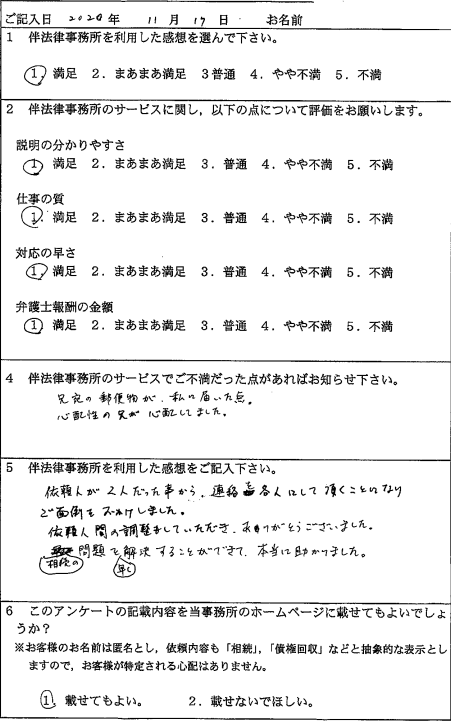 ご記入日 2020年 11月 17日 お名前
1 伴法律事務所を利用した感想を選んで下さい。
1．満足 2．まあまあ満足 3普通 4．やや不満 5．不満
2 伴法律事務所のサービスに関し，以下の点について評価をお願いします。
説明の分かりやすさ
1 満足 2．まあまあ満足 3．普通 4．やや不満 5．不満
仕事の質
1．満足 2．まあまあ満足 3．普通 4．やや不満 5．不満
対応の早さ
1 満足 2．まあまあ満足 3．普通 4．やや不満 5．不満
弁護士報酬の金額
1 満足 2．まあまあ満足 3．普通 4．やや不満 5．不満
4 伴法律事務所のサービスでご不満だった点があればお知らせ下さい。
兄宛の郵便物が、私に届いた点。
心配性の兄が心配してました。
5 伴法律事務所を利用した感想をご記入下さい。
依頼人が2人だった事から、連絡を各人にして頂くことになり
ご面倒をおかけしました。
依頼人間の調整をしていただき、ありがとうございました。
相続の問題を早く解決することができて、本当に助かりました。
6 このアンケートの記載内容を当事務所のホームページに載せてもよいでしょ
うか？
※お客様のお名前は匿名とし，依頼内容も「相続」，「債権回収」などと抽象的な表示とし
ますので，お客様が特定される心配はありません。
1．載せてもよい。 2．載せないでほしい。